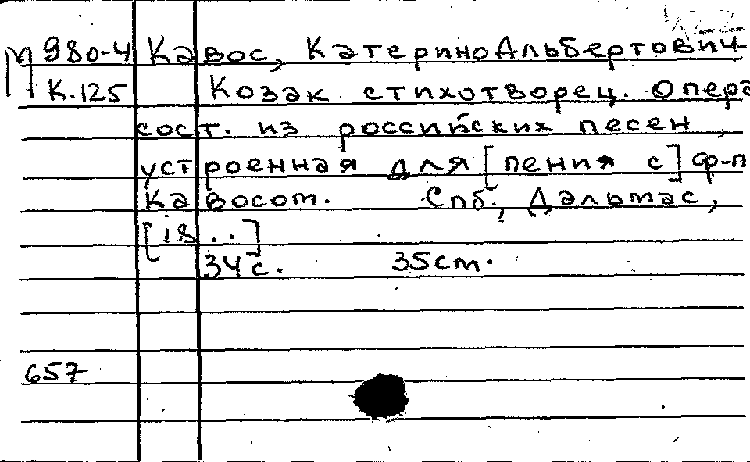 М 980-4 Кавос, Катерино Альбертович
К.125 Козак стихотворец. Опера
сост. из российских песен,
устроенная для [пения с] ф-п
Кавосом. Спб., Дальмас,
[18..]
34 с. 35 см.
657